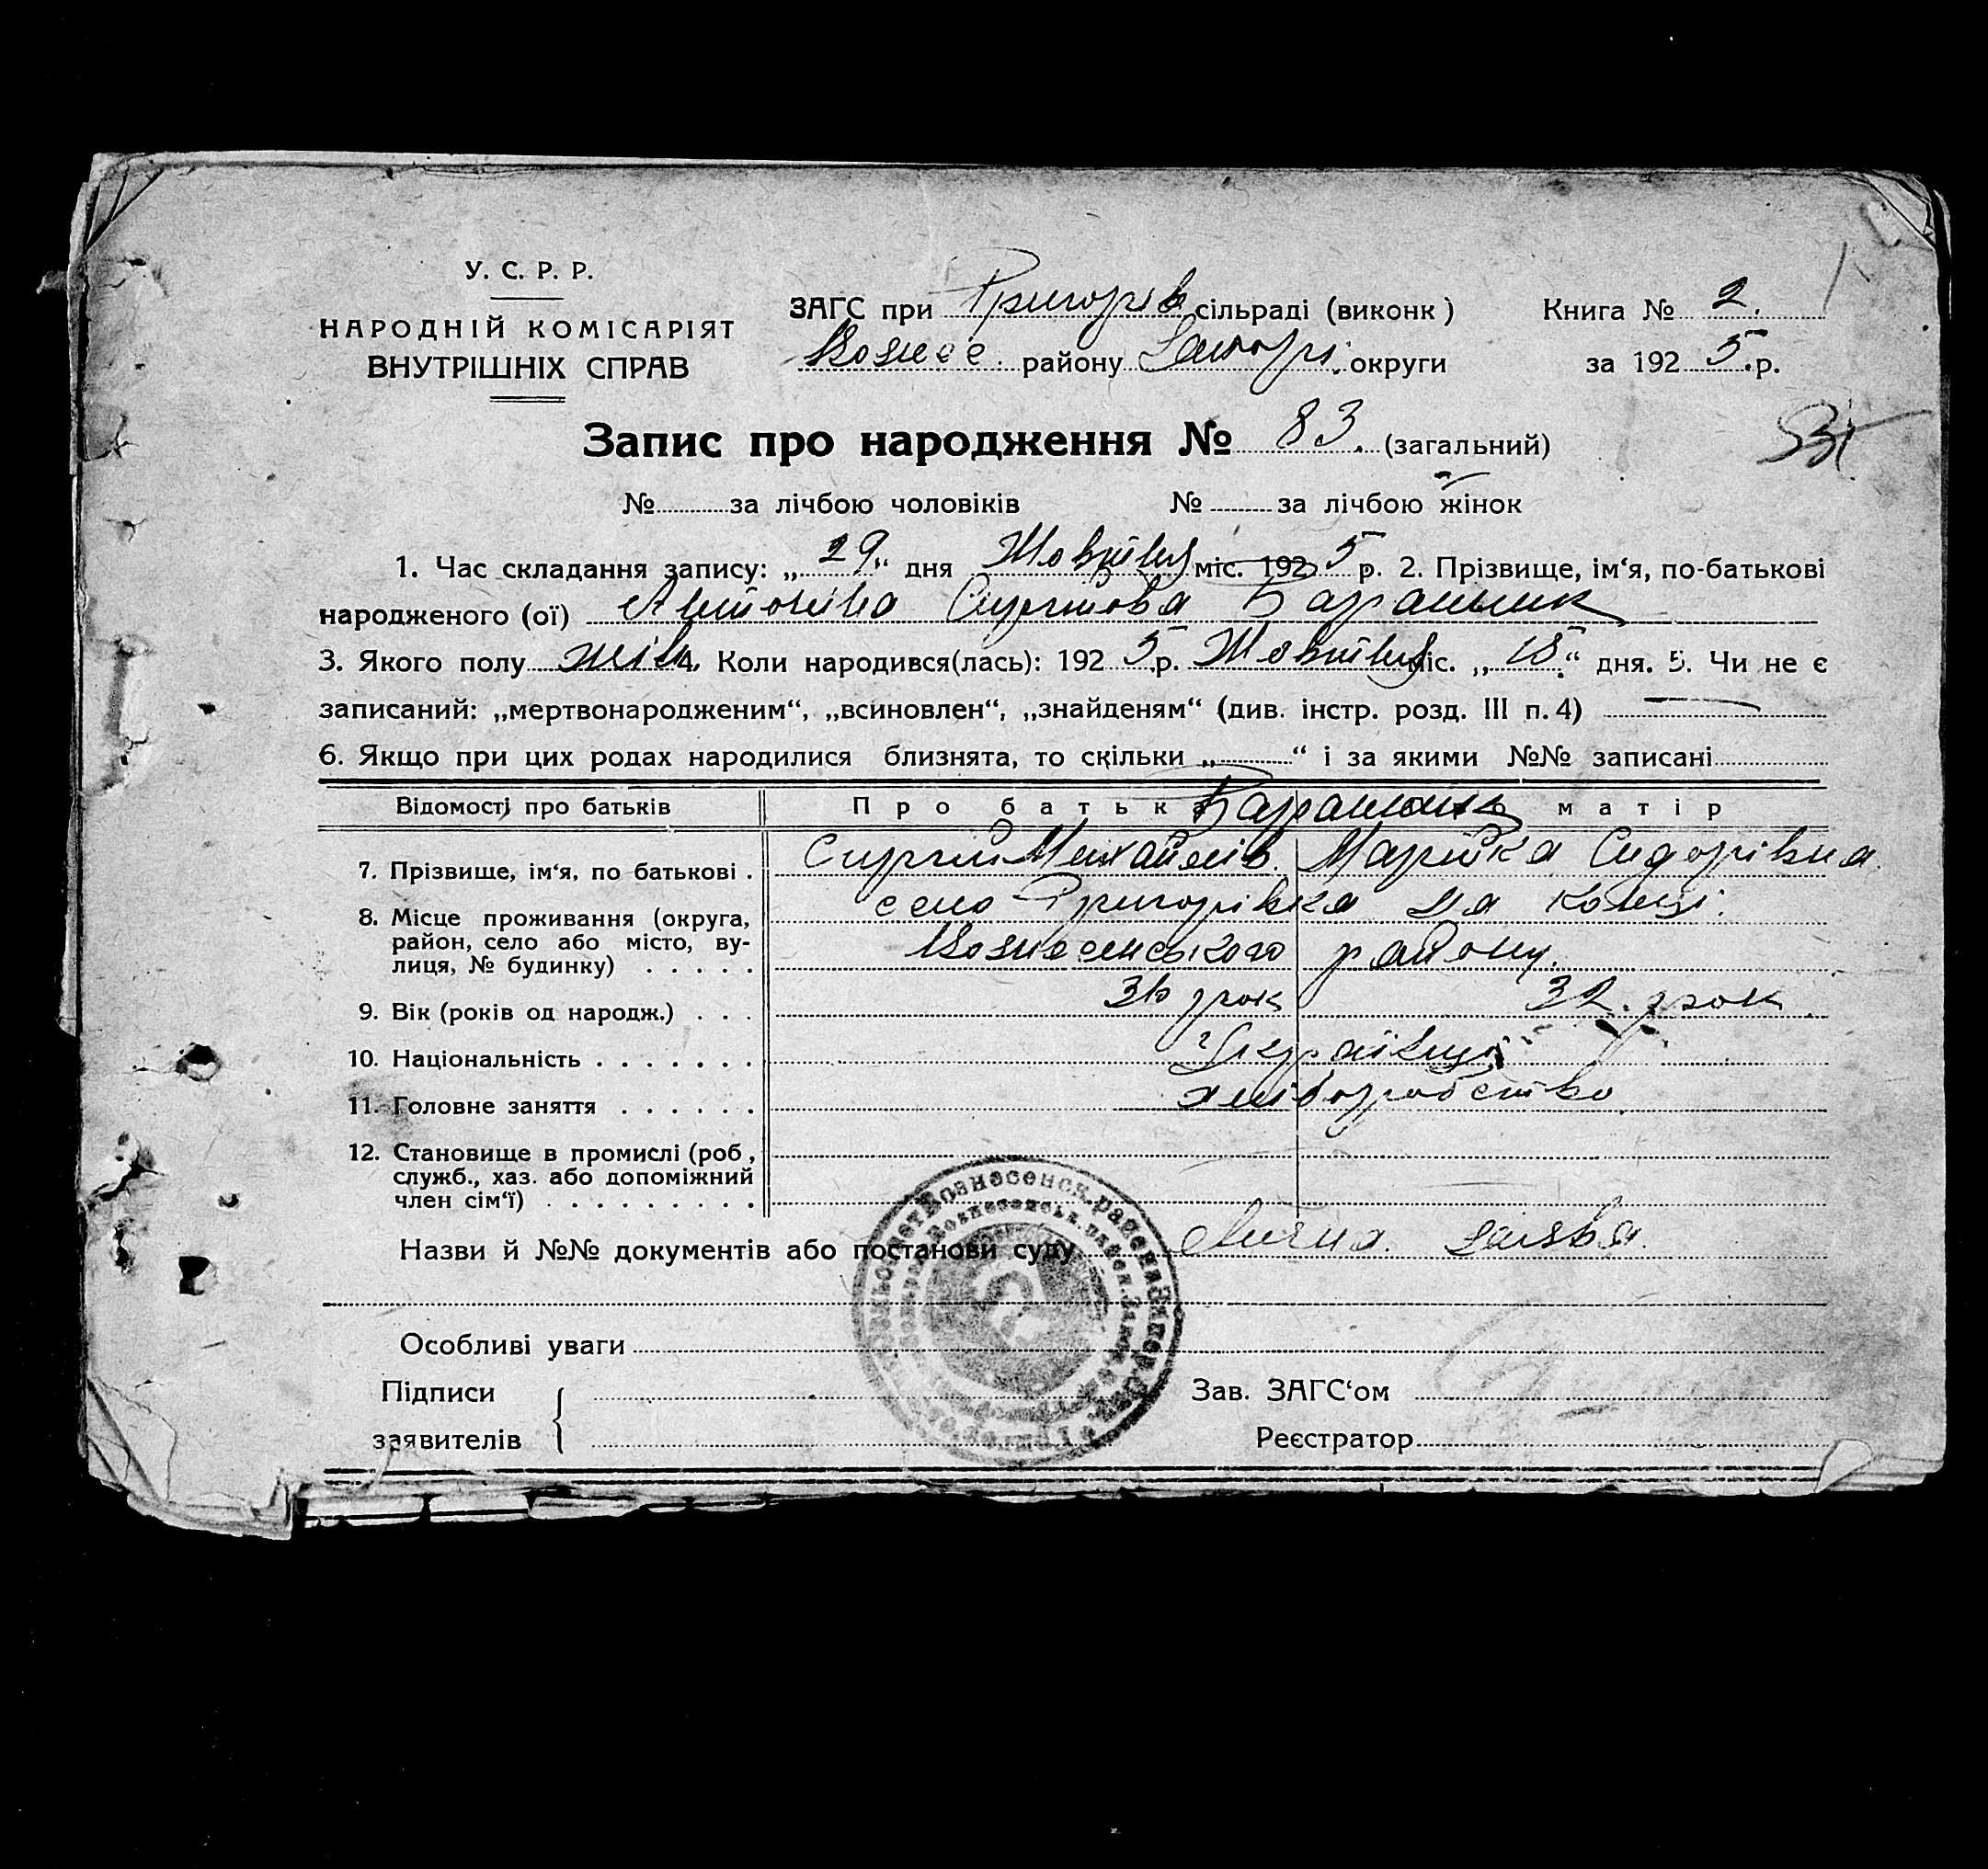 У. С. Р. Р.
НАРОДНІЙ КОМІСАРІЯТ
ВНУТРІШНІХ СПРАВ
ЗАГС при Григорів сільраді (виконк)
Вознес. району Запорі. округи
Книга № 2.
за 1925 .р.
Запис про народження № 83. (загальний)
№ за лічбою чоловіків № за лічбою жінок
1. Час складання запису: „29“ дня Жовтня міс. 1925 р. 2. Прізвище, ім‘я, по-батькові
народженого (ої) Антоніна Сергіїова Баранник
3. Якого полу жін. 4. Коли народився(лась): 1925 р. Жовтня міс. „15“ дня. 5. Чи не є
записаний: „мертвонародженим“, „всиновлен“, „знайденям“ (див. інстр. розд. III п. 4)
6. Якщо при цих родах народилися близнята, то скільки „ “ і за якими №№ записані
Відомості про батьків Про батьк матір
Баранник
7. Прізвище, ім‘я, по батькові . Сиргій Михайлів. Марійка Сидорівна
8. Місце проживання (округа, село Григорівка на Конці.
район, село або місто, ву-
лиця, № будинку) . . . . . Вознесенського району.
9. Вік (років од народж.) . . . рок 32. рок
10. Національність . . . . . . . Українці
11. Головне заняття . . . . . . хліборобство
12. Становище в промислі (роб,
служб., хаз. або допоміжний
член сім‘ї) . . . . . . . . .
Назви й №№ документів або постанови суду Лична заява.
Особливі уваги
Підписи
заявителів
Зав. ЗАГС‘ом
Реєстратор